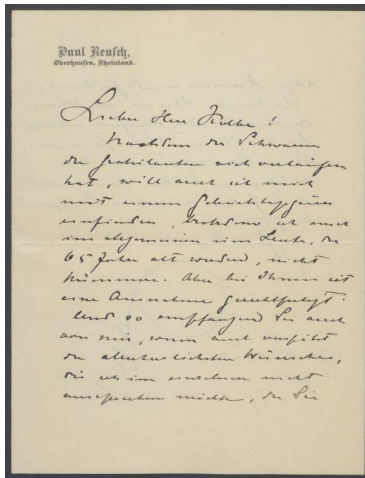 Paul Reusch,
Oberhausen, Rheinland.
Lieber Herr Fiedler!
Nachdem der Schwarm
der Gratulanten sich verlaufen
hat, will auch ich mich
mit einem Geburtstagsgruss
einfinden, trotzdem ich mich
im allgemeinen um Leute, die
65 Jahre alt werden, nicht
kümmere. Aber bei Ihnen ist
eine Ausnahme gerechtfertigt.
Und so empfangen Sie auch
von mir, wenn auch verspätet
die allerherzlichsten Wünsche,
die ich im einzelnen nicht
aussprechen möchte, da Sie